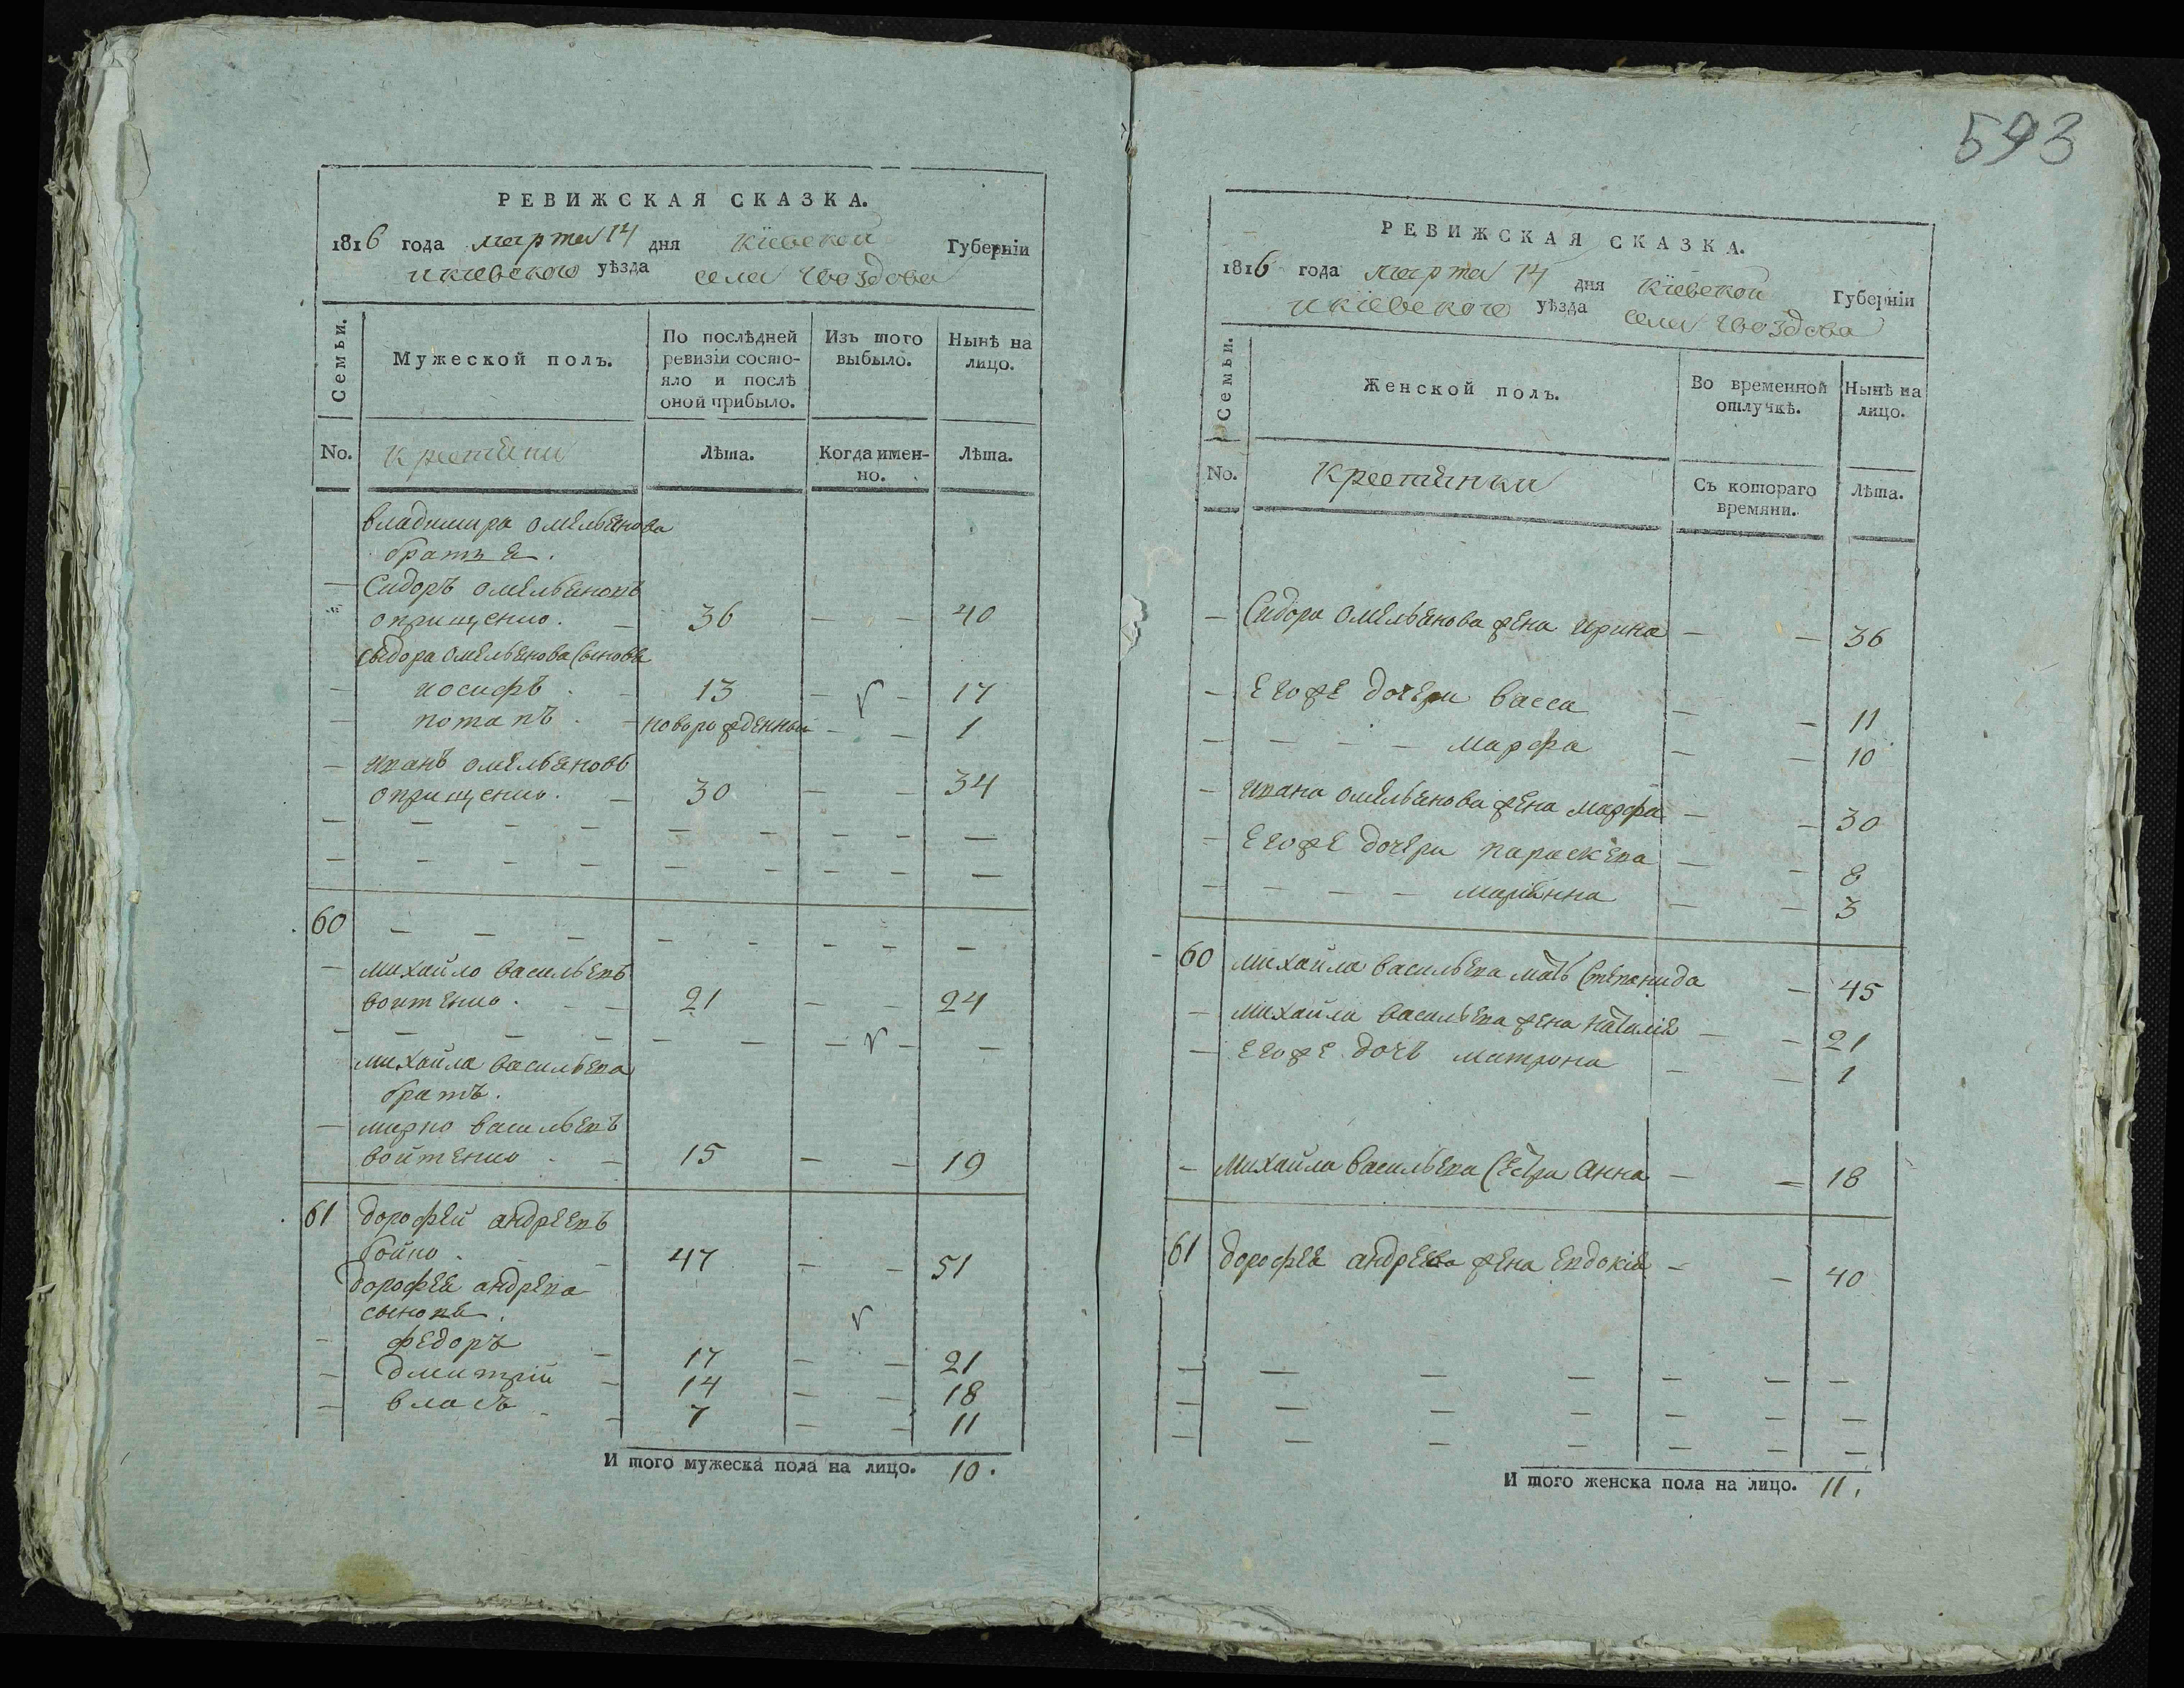 РЕВИЖСКАЯ СКАЗКА.
1816 года марта 14 дня Кіевской Губерніи
и кіевского уѣзда села Гвоздова
Семьи. Мужеской полъ. По послѣдней ревизіи состояло и послѣ оной прибыло. Изъ того выбыло. Нынѣ на лицо.
No. Крестяни Лѣта. Когда именно. Лѣта.
владимира омельянова
братья.
— Сидоръ омельяновъ
оприщенко. — 36 — — 40
сыдора омельянова сыновья
— иосифъ. — 13 — — 17
— потапъ. — новорожденный — — 1
— иванъ омельяновъ
оприщенко. — 30 — — 34
— — — — — — — — —
— — — — — — — — —
60 — — — — — — — —
— михайло васильевъ
воитенко. — — 21 — — 24
— — — — — — — — —
михайла васильева
братъ.
— марко васильевъ
войтенко — — 15 — — 19
61 дорофей андреевъ
бойко. — — 47 — — 51
дорофея андрева
сыновья.
— федоръ — 17 — — 21
— дмитрій — 14 — — 18
— власъ — — 7 — — 11
И того мужеска пола на лицо. 10.
593
РЕВИЖСКАЯ СКАЗКА.
1816 года марта 14 дня Кіевской Губерніи
и кіевского уѣзда села Гвоздова
Семьи. Женской полъ. Во временной отлучкѣ. Нынѣ на лицо.
No. Крестянки Съ котораго времяни. Лѣта.
— Сидора омельянова жена ирина — — 36
— егоже дочери васса — — 11
— — — — марфа — — 10
— ивана омельянова жена марфа — — 30
— егоже дочери параскева — — 8
— — — — маріянна — — 3
60 михайла васильева мать степанида — 45
— михайла васильева жена наталія — — 21
— егоже дочь матрона — — 1
— михайла васильева сестра анна — — 18
61 дорофея андреева жена евдокія — — 40
— — — — — — —
— — — — — — —
— — — — — — —
И того женска пола на лицо. 11.